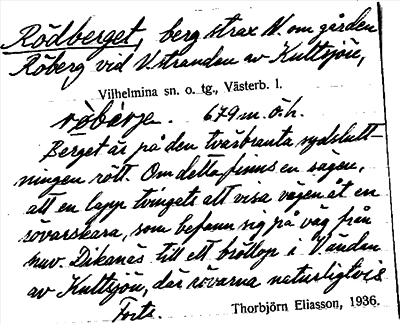 Rödberget, berg strax N. om gården
Röberg vid V. stranden av Kultsjön,
Vilhelmina sn. o. tg., Västerb. l.
679 m. ö. h.
Berget är på den tvärbranta sydslutt-
ningen rött. Om detta finns en sägen,
att en lapp tvingats att visa vägen åt en
rövarskara, som befann sig på väg från
nuv. Dikanäs till ett bröllop i V. änden
av Kultsjön, där rövarna naturligtvis
Forts.
Thorbjörn Eliasson, 1936.